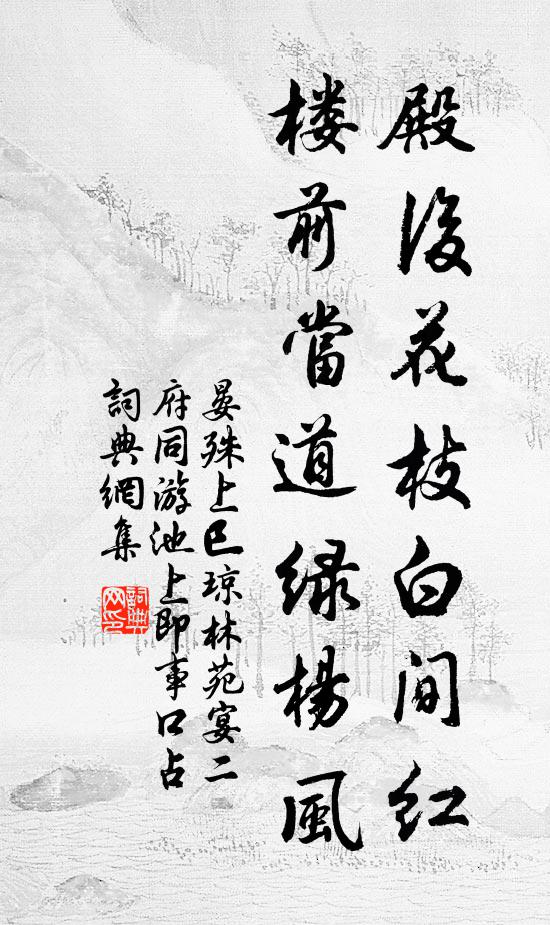 殿後花枝白间红
楼前當道绿楊風
晏殊上巳琼林苑宴二
府同游池上即事口占
詞典網集
詞典网印